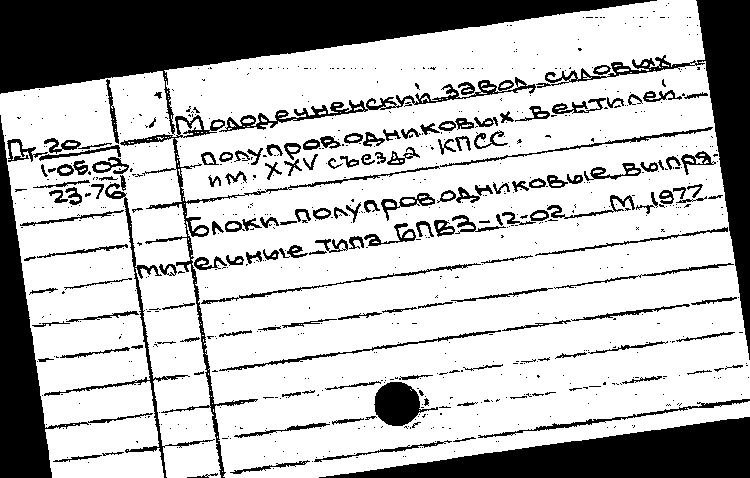 Пт. 20
1-05.03
23-76
Молодечненский завод силовых
полупроводниковых вентилей
им. XXV съезда КПСС.
Блоки полупроводниковые выпря-
мительные типа БПВЗ-12-02. М., 1977